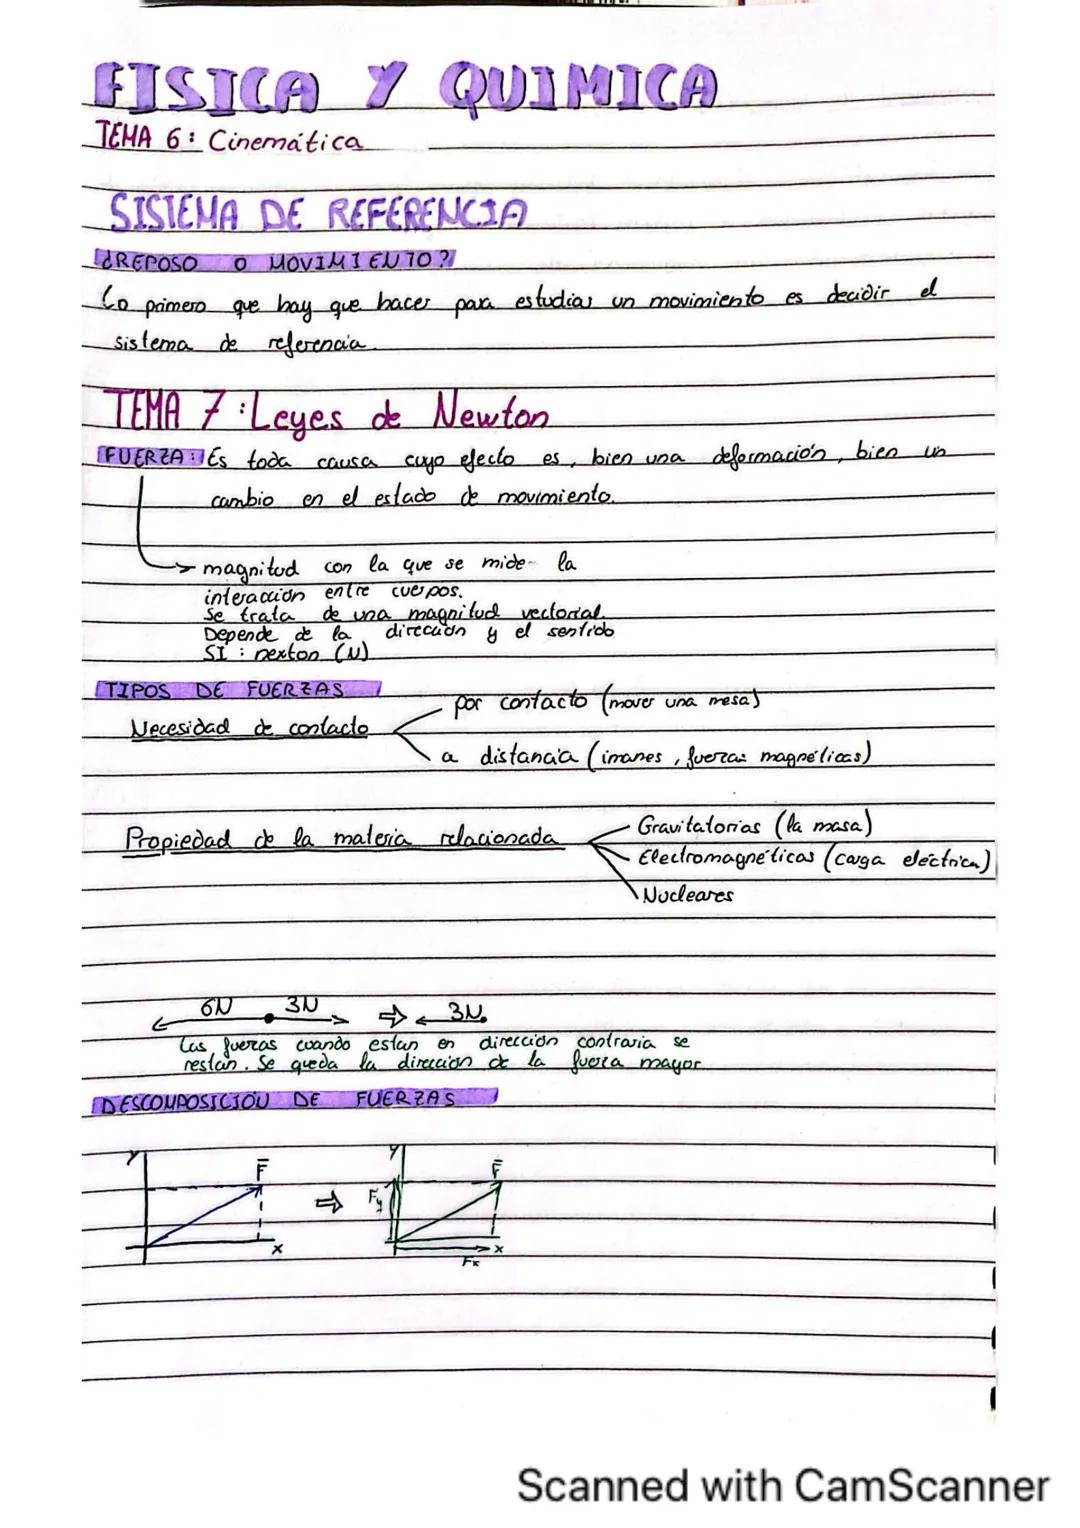 FISICA Y QUIMICA
TEMA 6: Cinemática
SISTEMA DE REFERENCIA
¿REPOSO O MOVIMIENTO?
Lo primero que hay que hacer para estudiar un movimiento es decidir el
sistema de referencia.
TEMA 7: Leyes de Newton
FUERZA: Es toda causa cuyo efecto es, bien una deformación, bien un
cambio en el estado de movimiento.
magnitud con la que se mide la
interacción entre cuerpos.
Se trata de una magnitud vectorial.
Depende de la dirección y el sentido
SI: nexton (N)
TIPOS DE FUERZAS
Necesidad de contacto
por contacto (mover una mesa)
a distancia (imanes, fuerzas magnéticas)
Propiedad de la materia relacionada
Gravitatorias (la masa)
Electromagnéticas (carga eléctrica)
Nucleares
6N 3N ⇒ 3N
Las fuerzas cuando estan en dirección contraria se
restan. Se queda la dirección de la fuerza mayor
DESCOMPOSICIÓN DE FUERZAS
y F x ⇒ y F Fy x Fx
Scanned with CamScanner